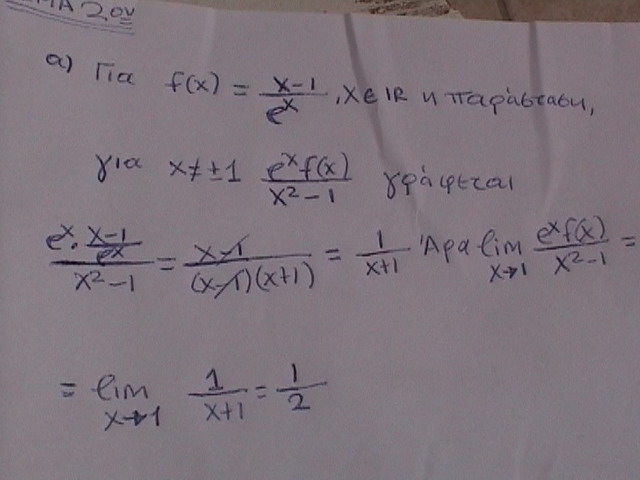 ΜΑ 2ον
α) Για f(x) = (x-1)/e^x , x ∈ IR η παράσταση,
για x ≠ ±1 (e^x f(x))/(x²-1) γράφεται
(e^x · (x-1)/e^x)/(x²-1) = (x-1)/((x-1)(x+1)) = 1/(x+1) Άρα lim x→1 (e^x f(x))/(x²-1) =
= lim x→1 1/(x+1) = 1/2